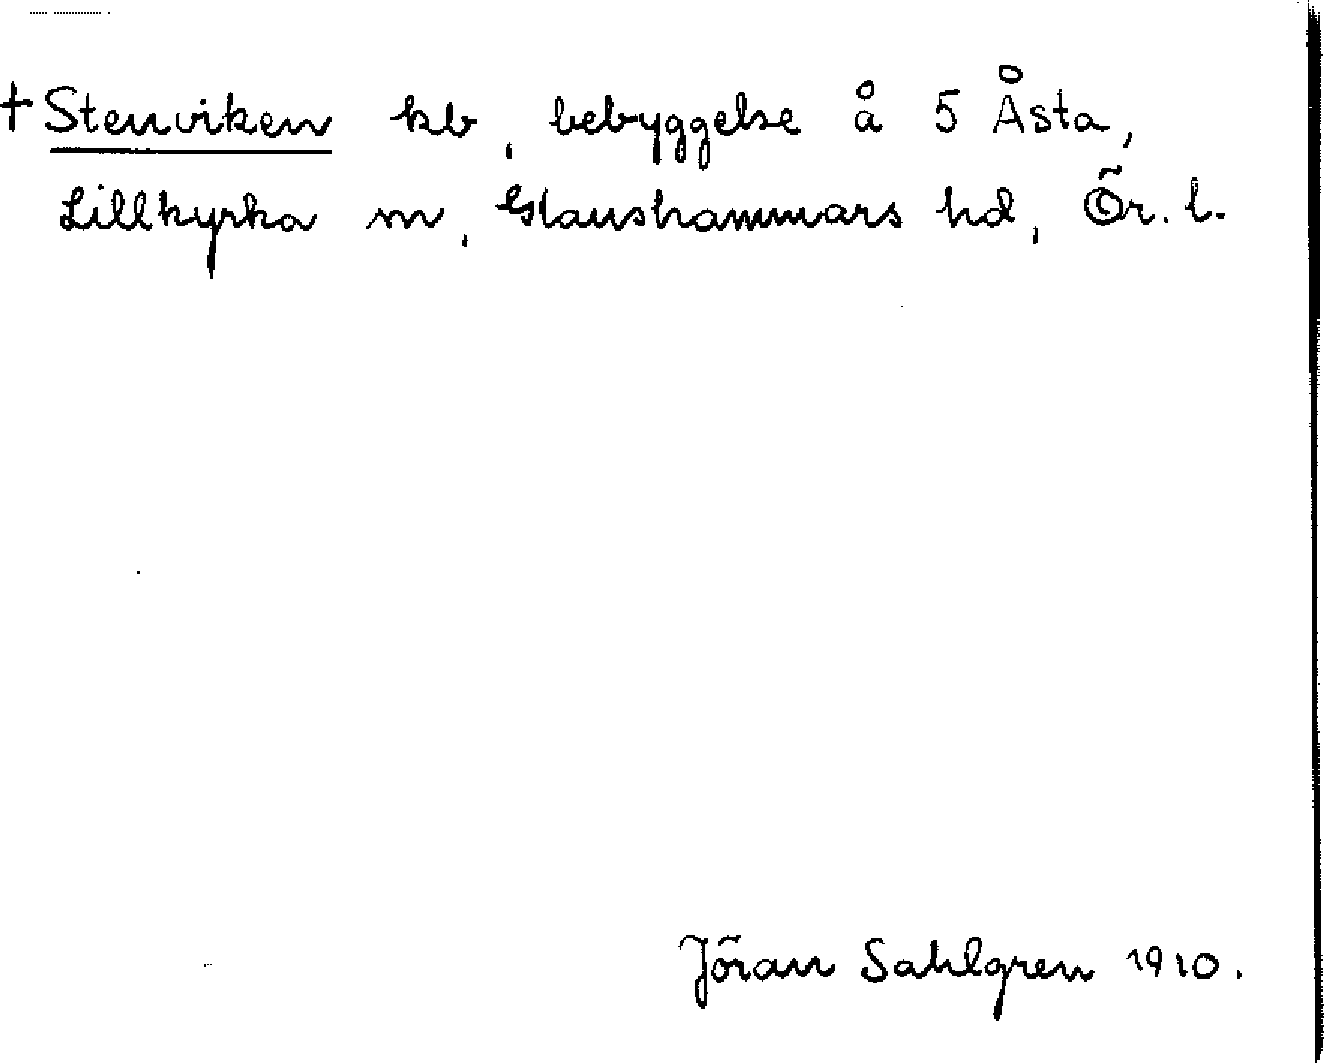 † Stenviken kb, bebyggelse å 5 Åsta,
Lillkyrka sn, Glanshammars hd, Ör. l.
Jöran Sahlgren 1910.